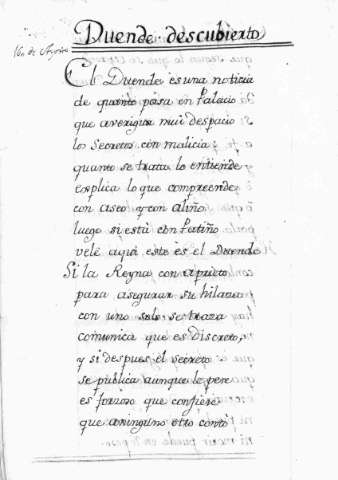 Duende descubierto
El Duende es una noticia
de quanto pasa en Palacio
que averigua mui despacio
los Secretos con malicia
quanto se trata lo entiende
explica lo que comprende
con aseo y con aliño
luego si está con Patiño
velé aqui este es el Duende
Si la Reyna con aprieto
para asegurar su
con uno solo se traza
comunica que es discreto,
y si despues el secreto
se publica aunque le pese
es forzoso que confiese
que a ninguno otro contó